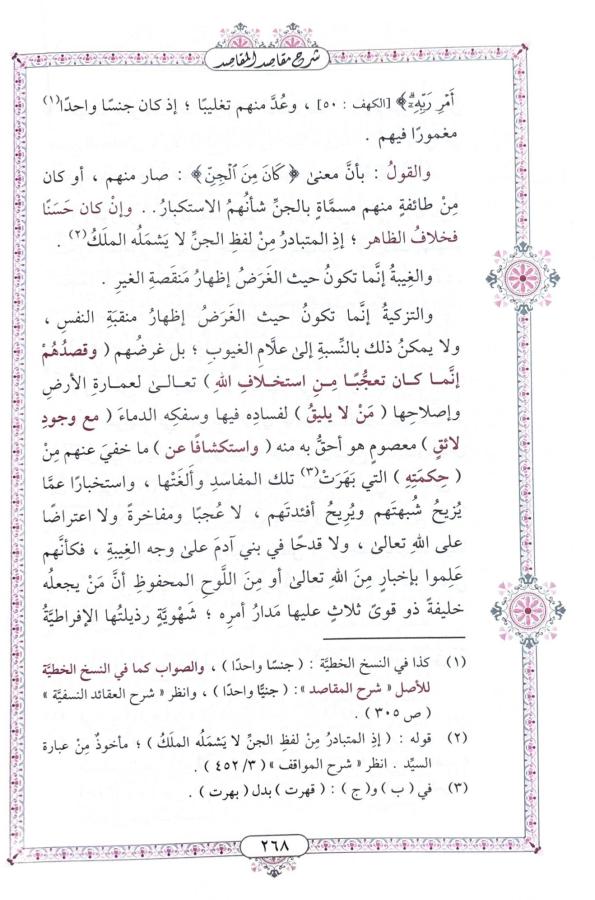 شرح مقاصد المقاصد
أَمْرِ رَبِّهِۦٓۗ﴾ [الكهف : ٥٠] ، وعُدَّ منهم تغليبًا ؛ إذ كان جنسًا واحدًا(١)
مغمورًا فيهم .
والقولُ : بأنَّ معنىٰ ﴿ كَانَ مِنَ ٱلْجِنِّ ﴾ : صار منهم ، أو كان
مِنْ طائفةٍ منهم مسمَّاةٍ بالجنِّ شأنُهمُ الاستكبارُ . . وإنْ كان حَسَنًا
فخلافُ الظاهر ؛ إذِ المتبادرُ مِنْ لفظِ الجنِّ لا يَشمَلُه الملَكُ(٢) .
والغِيبةُ إنَّما تكونُ حيث الغَرَضُ إظهارُ مَنقَصةِ الغيرِ .
والتزكيةُ إنَّما تكونُ حيث الغَرَضُ إظهارُ منقبَةِ النفسِ ،
ولا يمكنُ ذلك بالنِّسبةِ إلىٰ علَّامِ الغيوبِ ؛ بل غرضُهم ( وقصدُهُمْ
إنَّما كان تعجُّبًا مِنِ استخلافِ اللهِ ) تعالىٰ لعمارةِ الأرضِ
وإصلاحِها ( مَنْ لا يليقُ ) لفسادِه فيها وسفكِه الدماءَ ( مع وجودِ
لائقٍ ) معصومٍ هو أحقُّ به منه ( واستكشافًا عن ) ما خفيَ عنهم مِنْ
( حِكمَتِهِ ) التي بَهَرَتْ(٣) تلك المفاسدَ وألغَتْها ، واستخبارًا عمَّا
يُزيحُ شُبهتَهم ويُريحُ أفئدتَهم ، لا عُجبًا ومفاخرةً ولا اعتراضًا
على اللهِ تعالىٰ ، ولا قدحًا في بني آدمَ علىٰ وجه الغِيبةِ ، فكأنَّهم
عَلِموا بإخبارٍ مِنَ اللهِ تعالىٰ أو مِنَ اللَّوحِ المحفوظِ أنَّ مَنْ يجعلُه
خليفةً ذو قوىً ثلاثٍ عليها مَدارُ أمرِه ؛ شَهْويَّةٍ رذيلتُها الإفراطيَّةُ
(١) كذا في النسخ الخطيَّة : ( جنسًا واحدًا ) ، والصواب كما في النسخ الخطيَّة
للأصل « شرح المقاصد » : ( جنيًّا واحدًا ) ، وانظر « شرح العقائد النسفيَّة »
( ص ٣٠٥ ) .
(٢) قوله : ( إذِ المتبادرُ مِنْ لفظِ الجنِّ لا يَشمَلُه الملَكُ ) ؛ مأخوذٌ مِنْ عبارة
السيِّد . انظر « شرح المواقف » ( ٣/ ٤٥٢ ) .
(٣) في ( ب ) و( ج ) : ( قهرت ) بدل ( بهرت ) .
٢٦٨